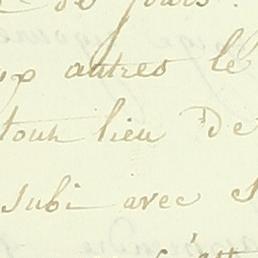 de jours.
autres le
tout lieu de
subi avec